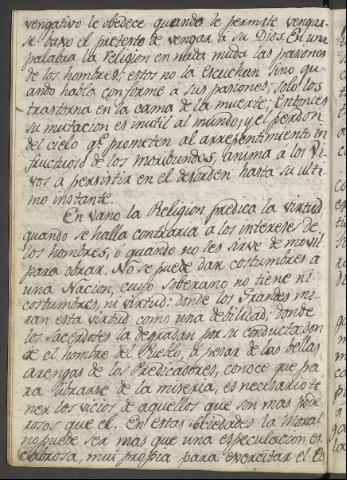 vengativo le obedece quando le permite vengar
se baxo el pretexto de vengar a su Dios. En una
palabra la religion en nada muda las pasiones
de los hombres; estos no la escuchan sino qu-
ando habla conforme a sus pasiones; solo los
trastorna en la cama de la muerte; Entonces
su mutacion es inutil al mundo; y el perdon
del cielo qe. prometen al arrepentimiento in
fructuoso de los moribundos, anima a los vi-
vos a persistir en el desorden hasta su ulti
mo instante.
En vano la Religion predica la virtud
quando se halla contraria a los intereses de
los hombres, o quando no les sirve de movil
para obrar. No se puede dar costumbres a
una Nacion, cuyo soberano no tiene ni
costumbres, ni virtud: donde los Grandes mi-
ran esta virtud como una debilidad; donde
los sacerdotes la degradan por su conducta don
de el hombre del Pueblo, a pesar de las bellas
arengas de los Predicadores, conoce que pa
ra librarse de la miseria, es necesario te
ner los vicios de aquellos que son mas pode
rosos que el. En estas sociedades la Moral
no puede ser mas que una especulacion es
, mui propia para exercitar el